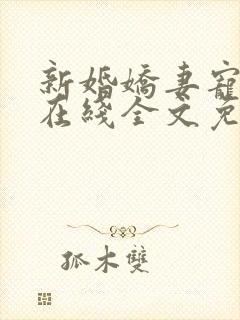 新婚嬌妻寵
在綫全文免
孤木雙